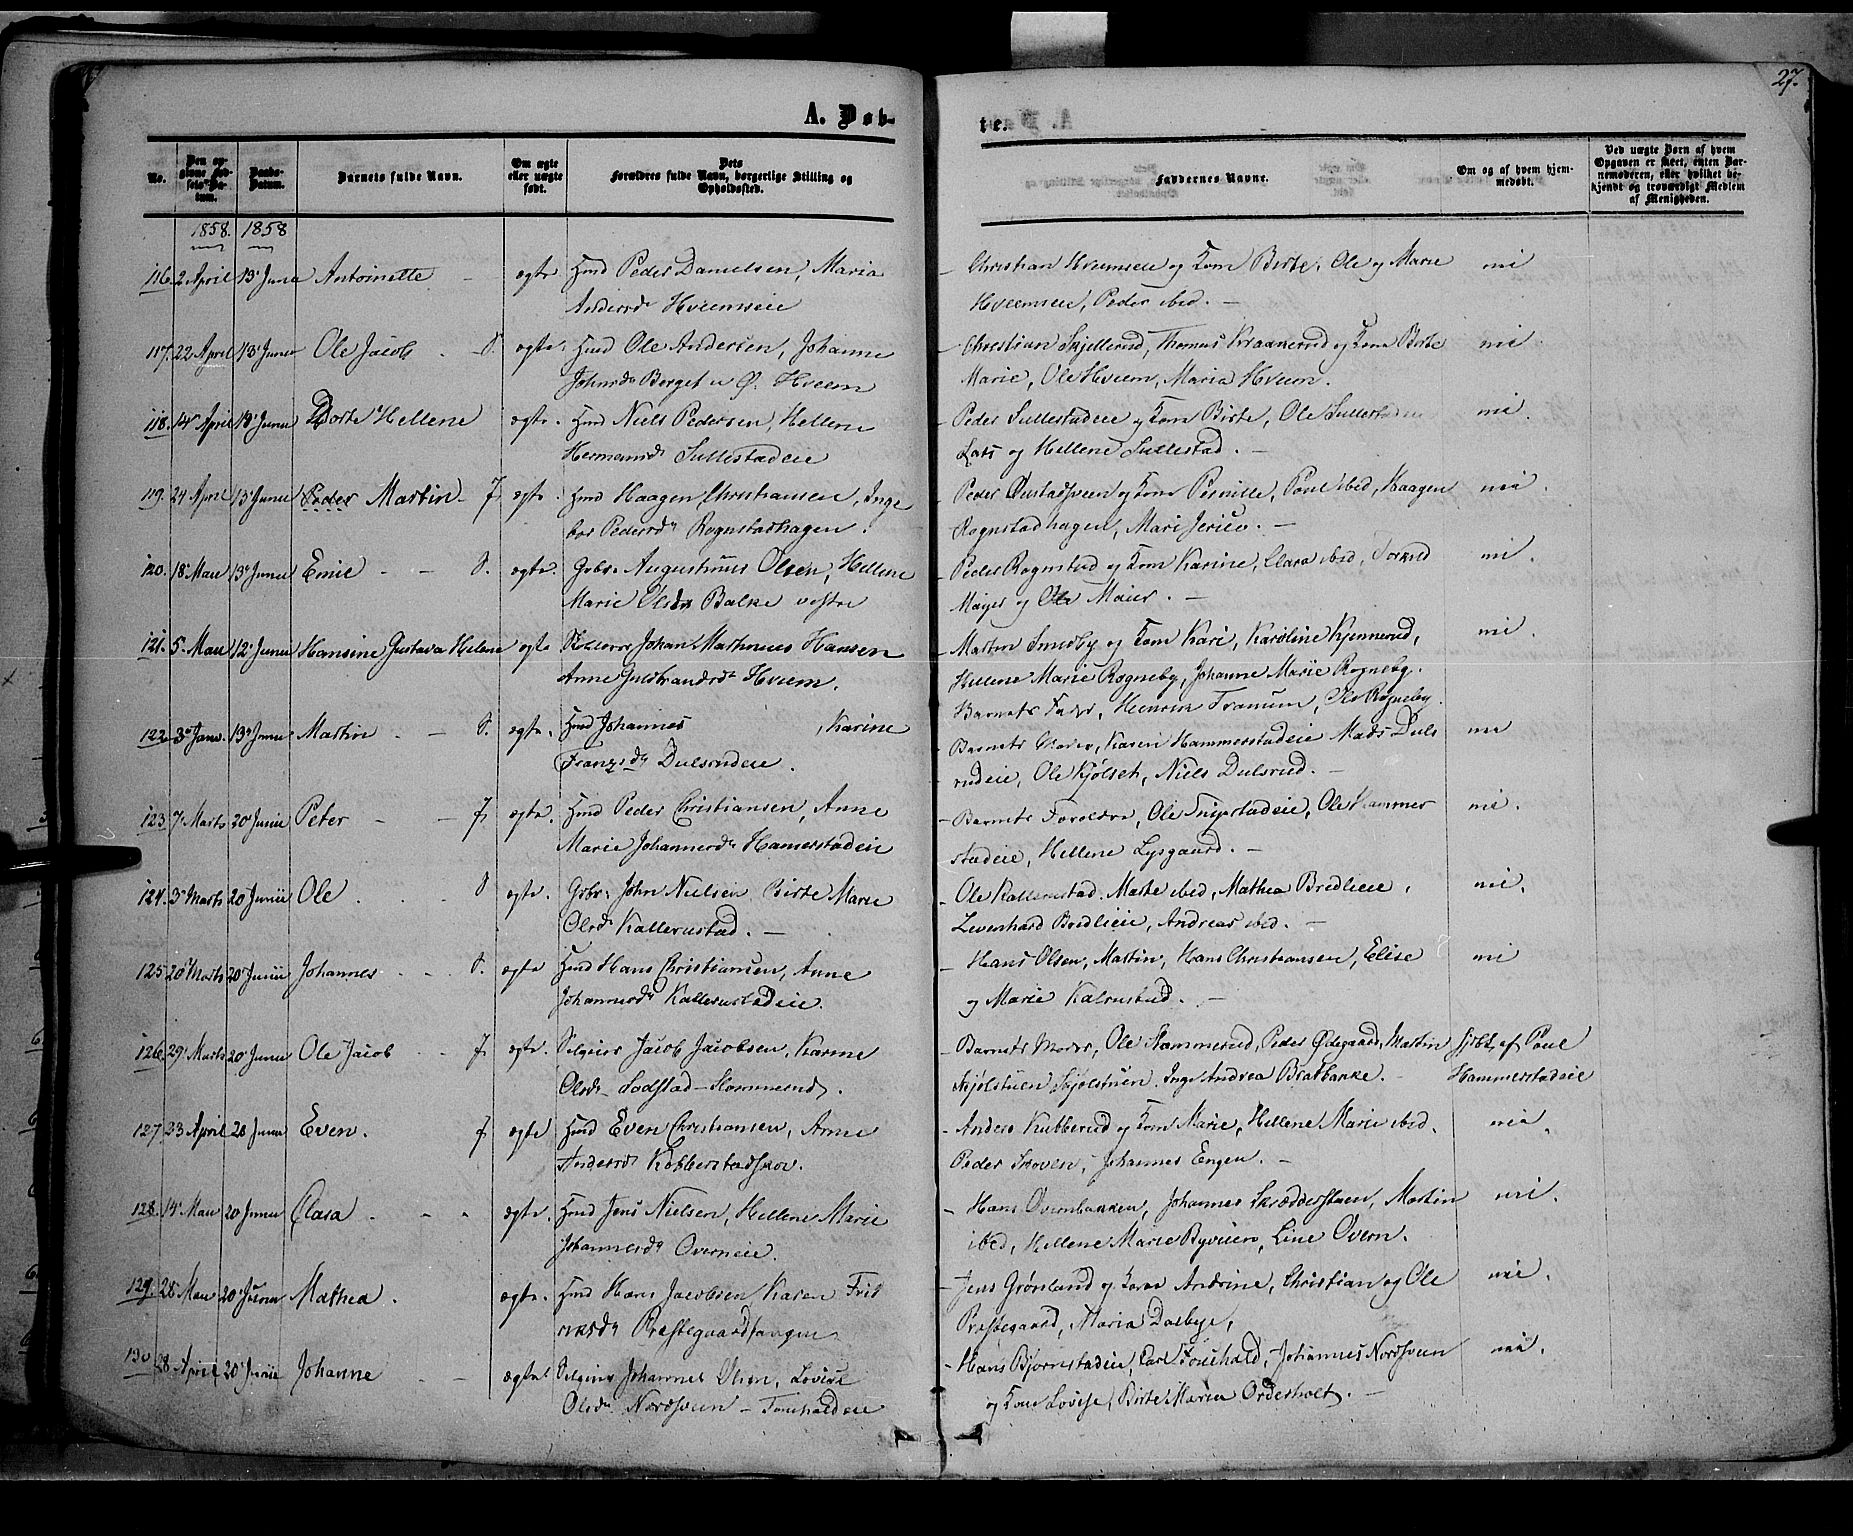 27.
A. Døb-
te.
No.
Den opgivne Fødsels-Datum.
Daabs-Datum.
Barnets fulde Navn.
Om ægte eller uægte født.
Dets Forældres fulde Navn, borgerlige Stilling og Opholdssted.
Faddernes Navne.
Om og af hvem hjemmedøbt.
Ved uægte Børn af hvem Opgaven er skeet, enten Barnemoderen, eller hvilket bekjendt og troværdigt Medlem af Menigheden.
1858. 1858
116. 2 April 13 Junii Antoinette - ægte Hmd Peder Danielsen, Maria
Andersd. Hveemseie
- Christian Hveemseie og Kone Birte, Ole og Marie nei
Hveemseie, Peder ibed. -
117. 22 April 13 Junii Ole Jacob - S. ægte Hmd Ole Andersen, Johanne
Johnsd. Berget u Ø. Hveem
Christian Skjellerud, Thomas Kraakerud og Kone Birte nei
Marie, Ole Hveem, Maria Hveem.
118. 14 April 13 Junii Dorte Hellene ægte Hmd Niels Pedersen, Hellene
Hermansd. Sullestadeie
- Peder Sullestadeie og Kone Birte, Ole Sullestadeie nei.
Lars og Hellene Sullestad. -
119. 24 April 13 Junii Peder Martin - J. ægte Hmd Haagen Christiansen, Inge
bor Pedersd. Rognstadhagen.
- Peder Øustadsveen og Kone Pernille, Poul ibed, Haagen nei.
Rognstadhagen, Mari Jerico. -
120. 18 Mai 13 Junii Emil - - S. ægte. Gbr. Augustinus Olsen, Hellene
Marie Olsdr Balke vestre
- Peder Rognstad og Kone Karine, Clara ibed, nei.
Majer og Ole Maier. -
121. 5. Mai 12 Junii Hansine Gustava Helene ægte Johan Mathæus Hansen
Anne Guldbrandsd. Hveem.
- Martin Smedby og Kone Kari, Karoline Kjennerud, nei.
Hellene Marie Rogneby, Johanne Marie Rogneby.
Barnets Fader, Henrik Tranum, Rogneby.
122. 3 Janr. 13 Junii Martin - - S. ægte. Hmd Johannes , Karine
Franzsd. Dulsrudeie.
- Barnets Moder, Karen Hammerstadeie Mads Duls nei
rudeie, Ole Kjølset, Niels Dulsrud. -
123. 7 Marts 20 Junii Peter - - J. ægte. Hmd Peder Christiansen, Anne
Marie Johannesd. Hamerstadeie
- Barnets Forældre, Ole Tingstadeie, Ole Hammer nei.
stadeie, Hellene Lysgaard. -
124. 3 Marts 20 Junii Ole . . S ægte. Gbr. John Nielsen Birte Marie
Olsd. Kallerustad. -
- Ole Kallerustad. Marte ibed, Mathea Bredlieie, nei.
Levenhard Bredlieie, Andreas ibed. -
125. 20 Marts 20 Junii Johannes - - S. ægte Hmd Hans Christiansen, Anne
Johannesd. Kallerustadeie.
- Hans Olsen, Martin, Hans Christiansen, Elise nei
og Marie Kalrustad. -
126. 29 Marts 20 Junii Ole Jacob - J. ægte. Selveier Jacob Jacobsen, Karine
Olsdr. Lodstad - Hammerud.
- Barnets Moder, Ole Hammerud, Peder Ødegaard, Martin hjbt. af Poul
Kjølstuen Kjølstuen. Inge Andrea Bratbakke. - Hammerstadeie
127. 23 April 20 Junii Even. J. ægte Hmd Even Christiansen, Anne
Andersd. Kobberstadskov.
- Anders Kubberud og Kone Marie, Hellene Marie ibed. nei.
Peder Skoven, Johannes Engen. -
128. 14 Mai 20 Junii Clara - - - ægte. Hmd Jens Nielsen, Hellene Marie
Johannesd. Overneie.
- Hans Overnbakken, Johannes Skrædderstuen, Martin nei.
ibed, Hellene Marie Byveien, Line Overn.
129. 28 Mai 20 Junii Mathea. ægte. Hmd Hans Jacobsen Karen Frid
riksd. Præstegaardsangen.
- Jens Grønland og Kone Andrine, Christian og Ole nei.
Præstegaard, Maria Dalbye,
130 28 April 20 Junii Johanne - - ægte. Selveier Johannes Olsen, Lovise
Olsd. Nordsveen - Fouchaldeie
- Hans Bjørnstadeie, Carl Fouchald, Johannes Nordsveen nei.
og Kone Lovise, Birte Maria Orderholt. -